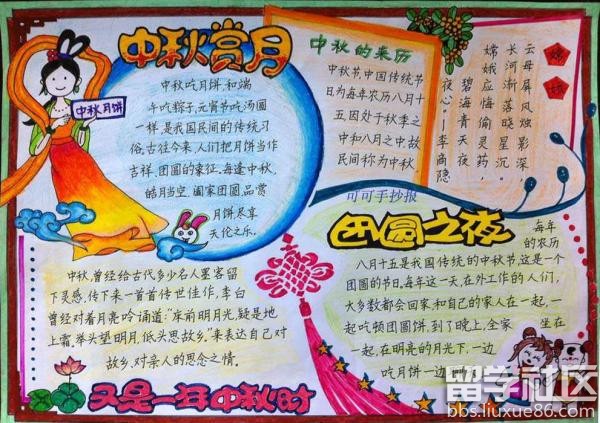 中秋赏月
中秋月饼
中秋吃月饼,和端
午吃粽子,元宵节吃汤圆
一样,是我国民间的传统习
俗。古往今来,人们把月饼当作
吉祥、团圆的象征。每逢中秋,
皓月当空,阖家团圆,品赏
月饼尽享
天伦之乐。
中秋的来历
中秋节,中国传统节
日为每年农历八月十
五因处于秋季之
中和八月之中故
民间称为中秋.
嫦娥
云母屏风烛影深
长河渐落晓星沉。
嫦娥应悔偷灵药,
碧海青天夜
夜心。—李商隐
可可手抄报
团圆之夜
每年
的农历
八月十五是我国传统的中秋节,这是一个
团圆的节日。每年这一天,在外工作的人们,
大多数都会回家,和自己的家人在一起,一
起吃顿团圆饼,到了晚上,全家坐在
一起,在明亮的月光下,一边
吃月饼一边
中秋,曾经给古代多少名人墨客留
下灵感,传下来一首首传世佳作,李白
曾经对着月亮吟诵道:“床前明月光,疑是地
上霜,举头望明月,低头思故乡。”来表达自己对
故乡,对亲人的思念之情。
又是一年中秋时
留学社区
bbs.liuxue86.com